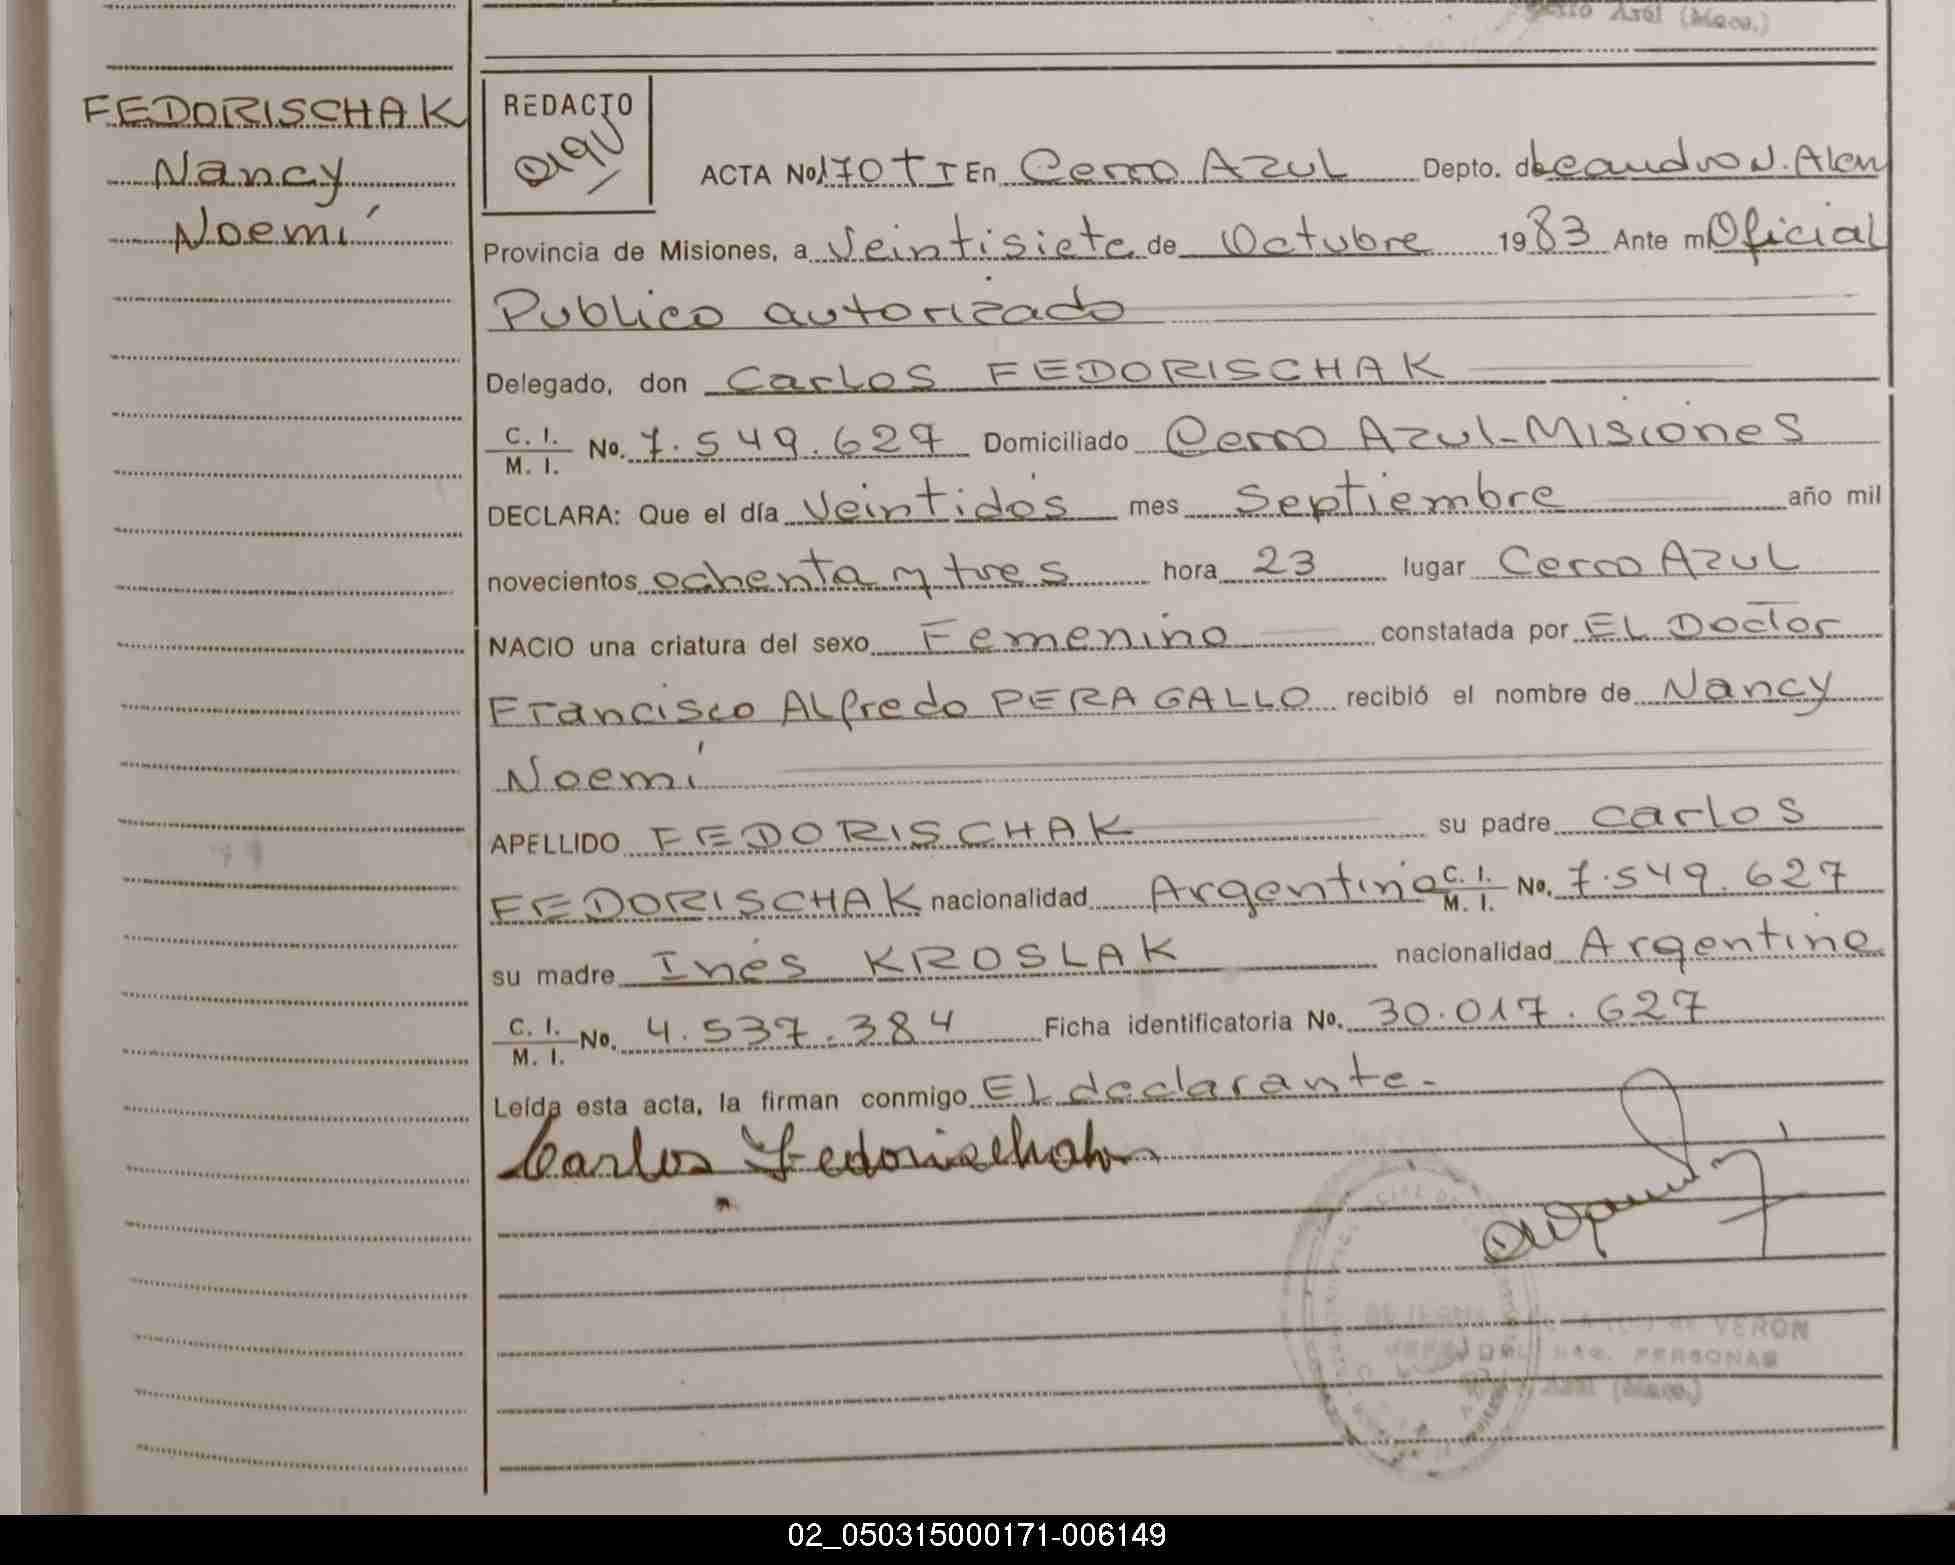 Cerro Azul (Mnes.)
FEDORISCHAK
Nancy
Noemí
REDACTO
ACTA No. 170 T I En Cerro Azul Depto. de Leandro N. Alem
Provincia de Misiones, a Veintisiete de Octubre 1983 Ante mi Oficial
Publico autorizado
Delegado, don Carlos FEDORISCHAK
C. I. / M. I. No. 7.549.627 Domiciliado Cerro Azul-Misiones
DECLARA: Que el día Veintidós mes Septiembre año mil
novecientos ochenta y tres hora 23 lugar Cerro Azul
NACIO una criatura del sexo Femenino constatada por El Doctor
Francisco Alfredo PERAGALLO recibió el nombre de Nancy
Noemí
APELLIDO FEDORISCHAK su padre Carlos
FEDORISCHAK nacionalidad Argentina C. I. / M. I. No. 7.549.627
su madre Inés KROSLAK nacionalidad Argentina
C. I. / M. I. No. 4.537.384 Ficha identificatoria No. 30.017.627
Leída esta acta, la firman conmigo El declarante.-
Carlos Fedorischak
de VERON
DEL REG. PERSONAS
Azul (Mnes.)
02_050315000171-006149